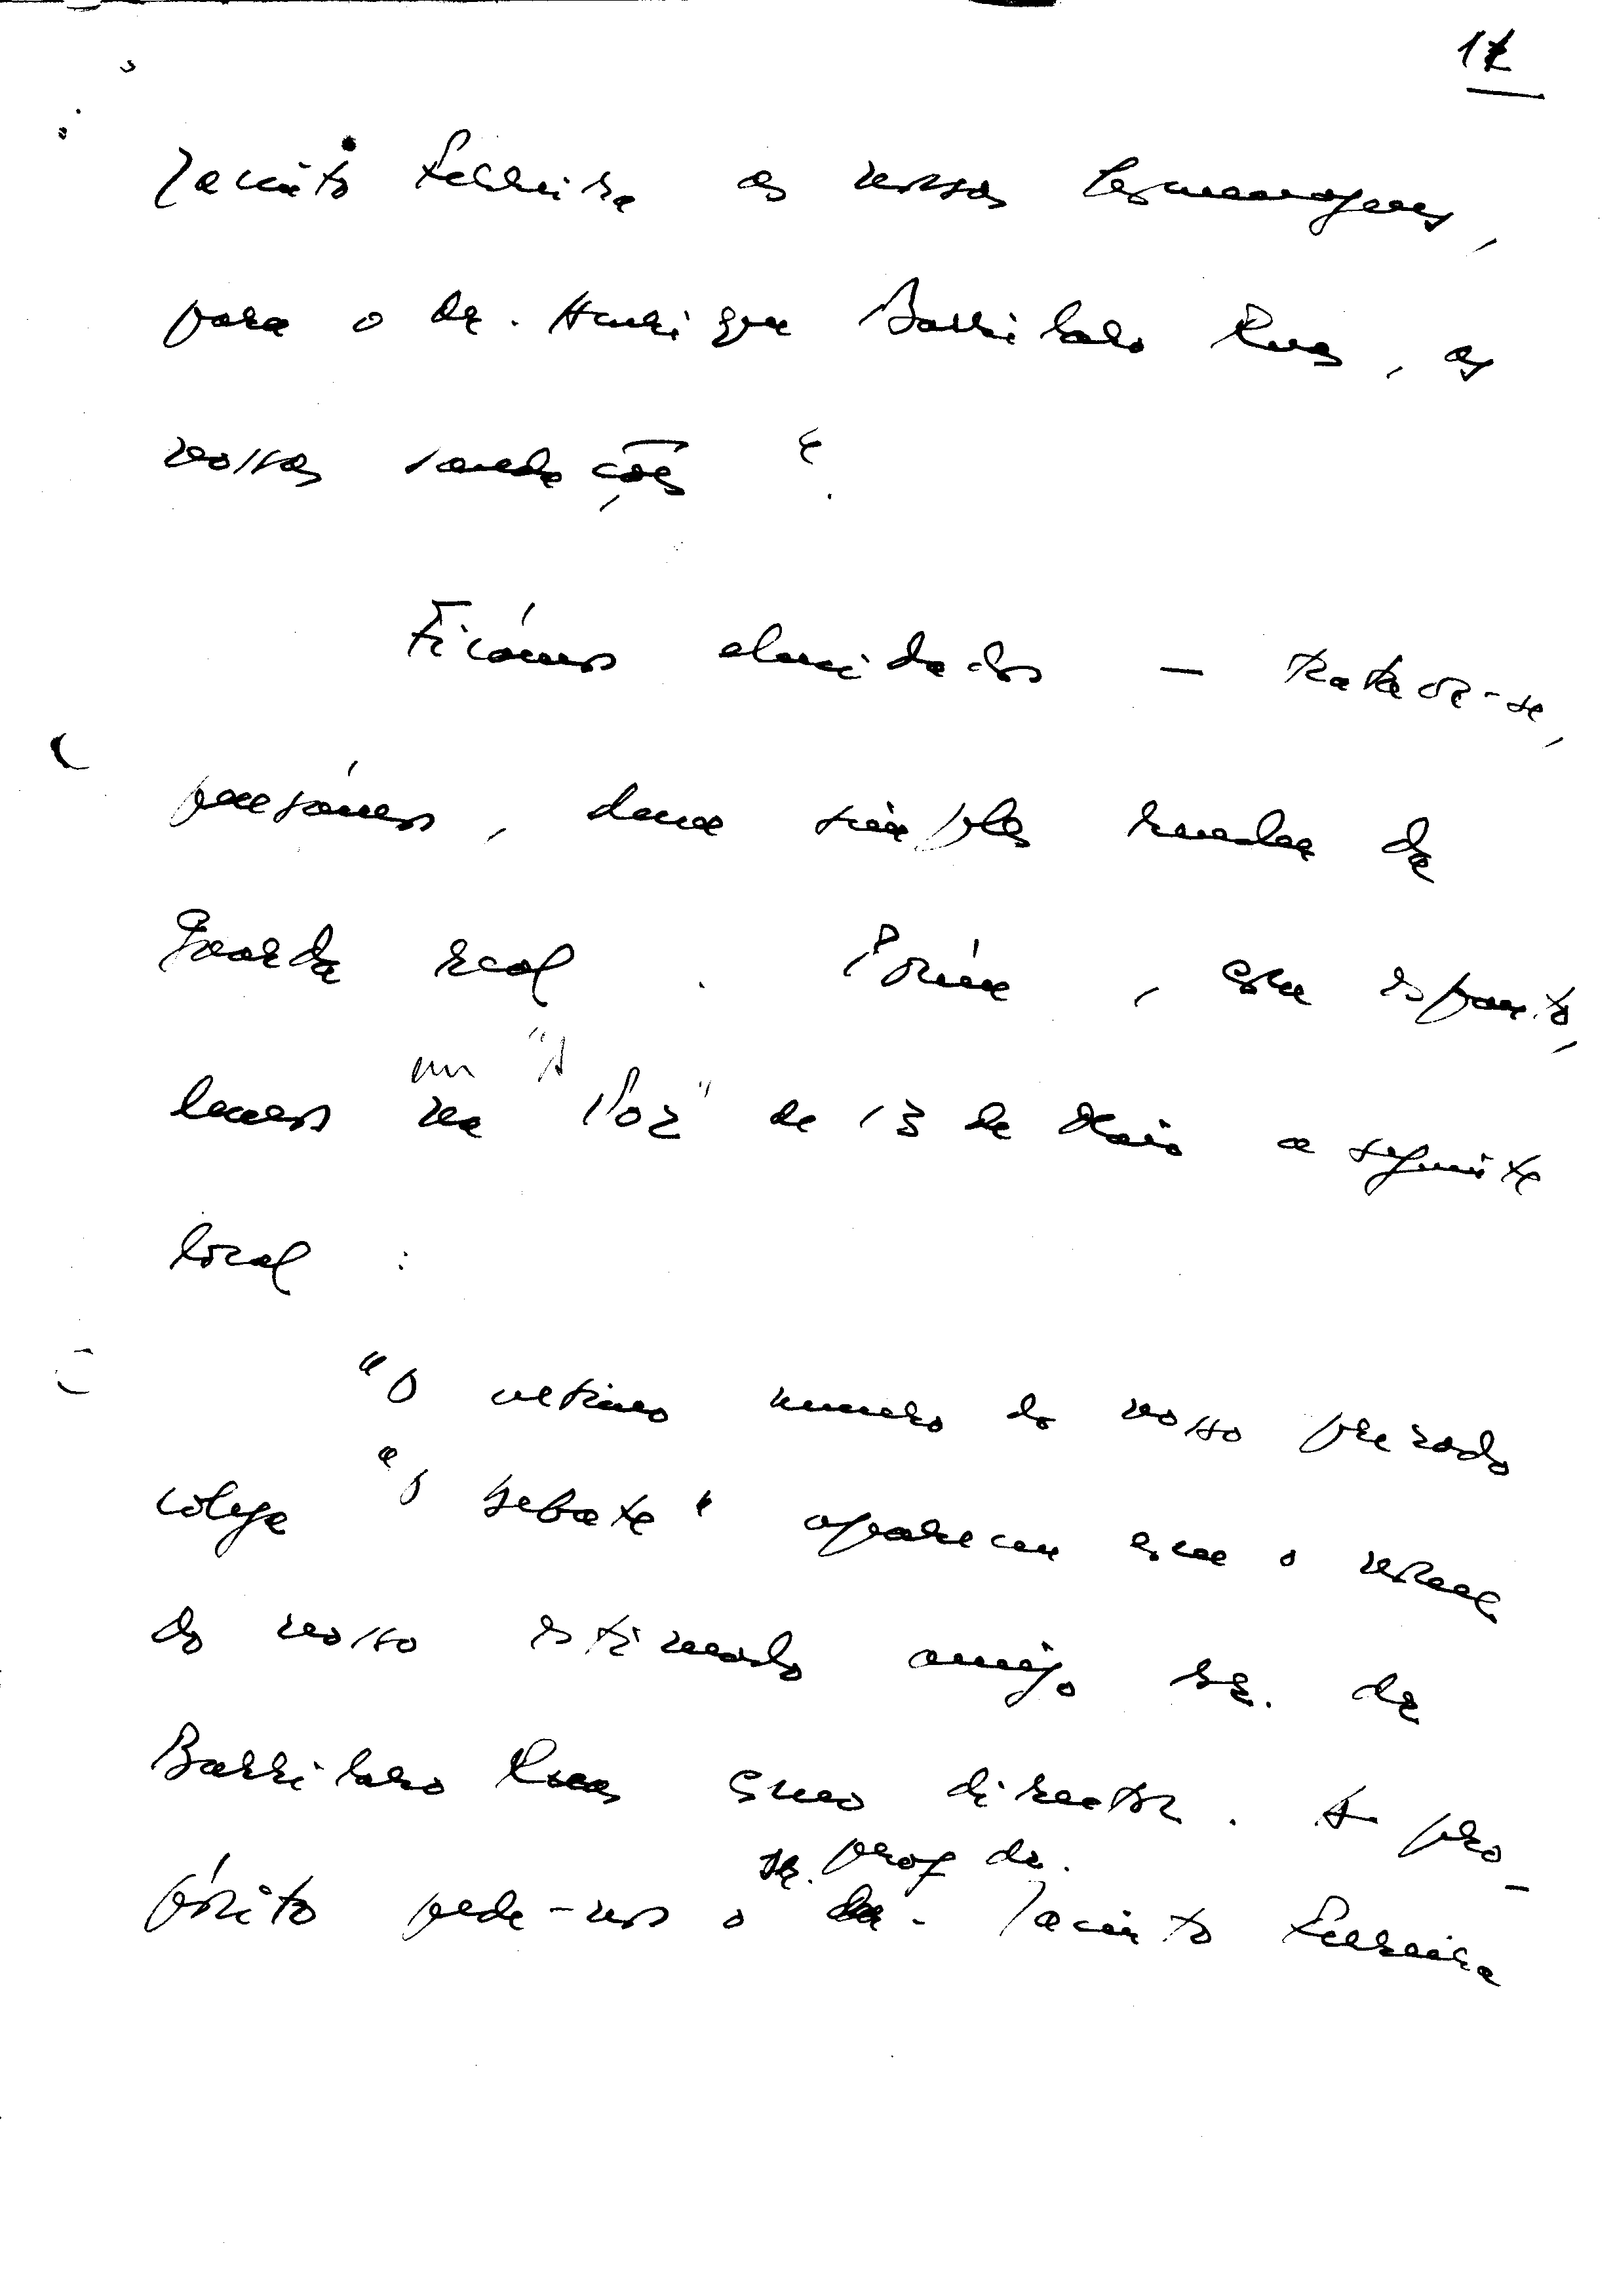 17
Jacinto Ferreira as nossas homenagens,
para o dr. Henrique Barrilaro Ruas, as
nossas saudações".
Ficámos elucidados — tratar-se,
pensámos, duma simples mudar da
guarda real. Porém, com espanto,
lemos em "A Voz" de 13 de Maio a seguinte
local:
"O ultimo numero do nosso prezado
colega "O Debate" apareceu com o nome
do nosso estimado amigo sr. dr
Barrilaro Ruas como director. A pro-
pósito pede-nos o sr. prof dr. Jacinto Ferreira